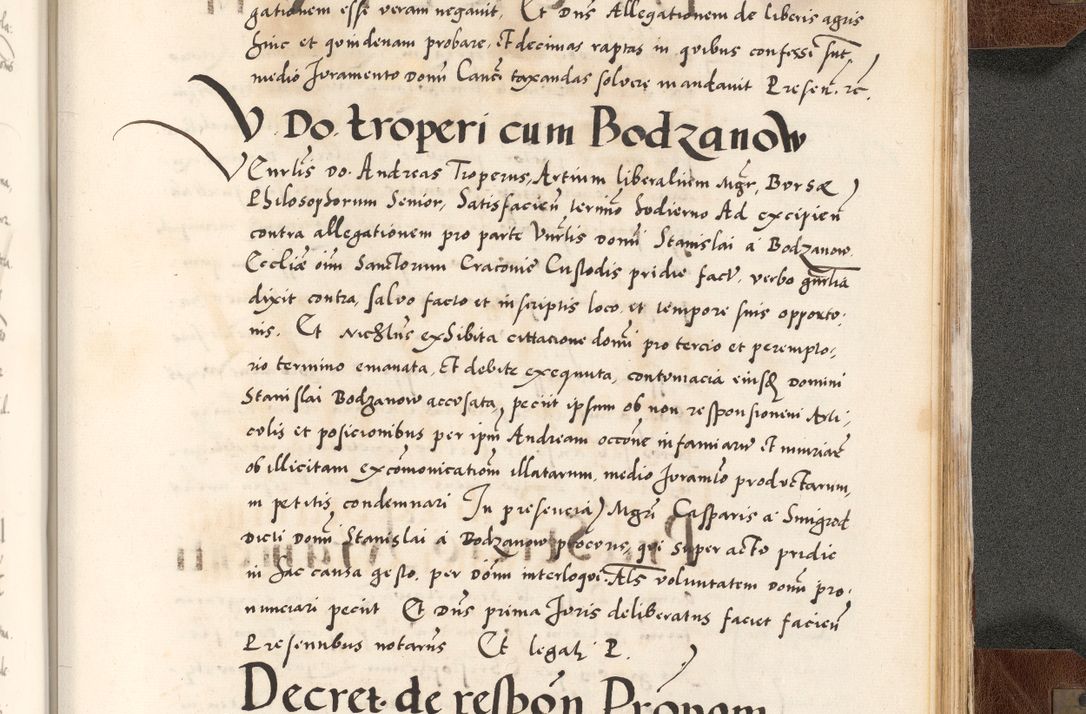 gationem esse veram negavit, Et Dns Allegationem de liberis agris
hinc et quindenam probare, Et decimas raptas in quibus confessi sut,
medio Juramento Domi Canci taxandas solvere mandavit Presen. rc.
V. Do. troperi cum Bodzanow
Vnrlis do. Andreas Troperus, Artium liberalium Mgr, Bursae
Philosophorum Senior, Satisfacien termino hodierno Ad excipien
contra allegationem pro parte Vnrlis Domi Stanislai a Bodzanow
Eccliae oim Sanctorum Cracovie Custodis pridie fact. verbo gnrlia
dixit contra, salvo facto et in scriptis loco et tempore suis opporto,
nis. Et Nichlus exhibita cittacione domi pro tercio et perempto,
rio termino emanata, Et debite exequuta, contumacia eiusq Domini
Stanislai Bodzanow accusata, peciit ipsum ob non responsionem Arti,
culis et posicionibus per ipm Andream occone infamiaru et iniuriae
ob illicitam excomonicationi illatarum, medio Juramto productarum,
in petitis condemnari In presencia Mgri Casparis a Smigrod
Dicti Domi Stanislai a Bodzanow procoris, qui super acto pridie
in hac causa gesto, per Dom interloqui. Als voluntatem Domi pro,
nunciari peciit Et Dns prima Juris deliberatus faciet facien
Presentibus notariis Et legali P.
Decret. de respon Propam